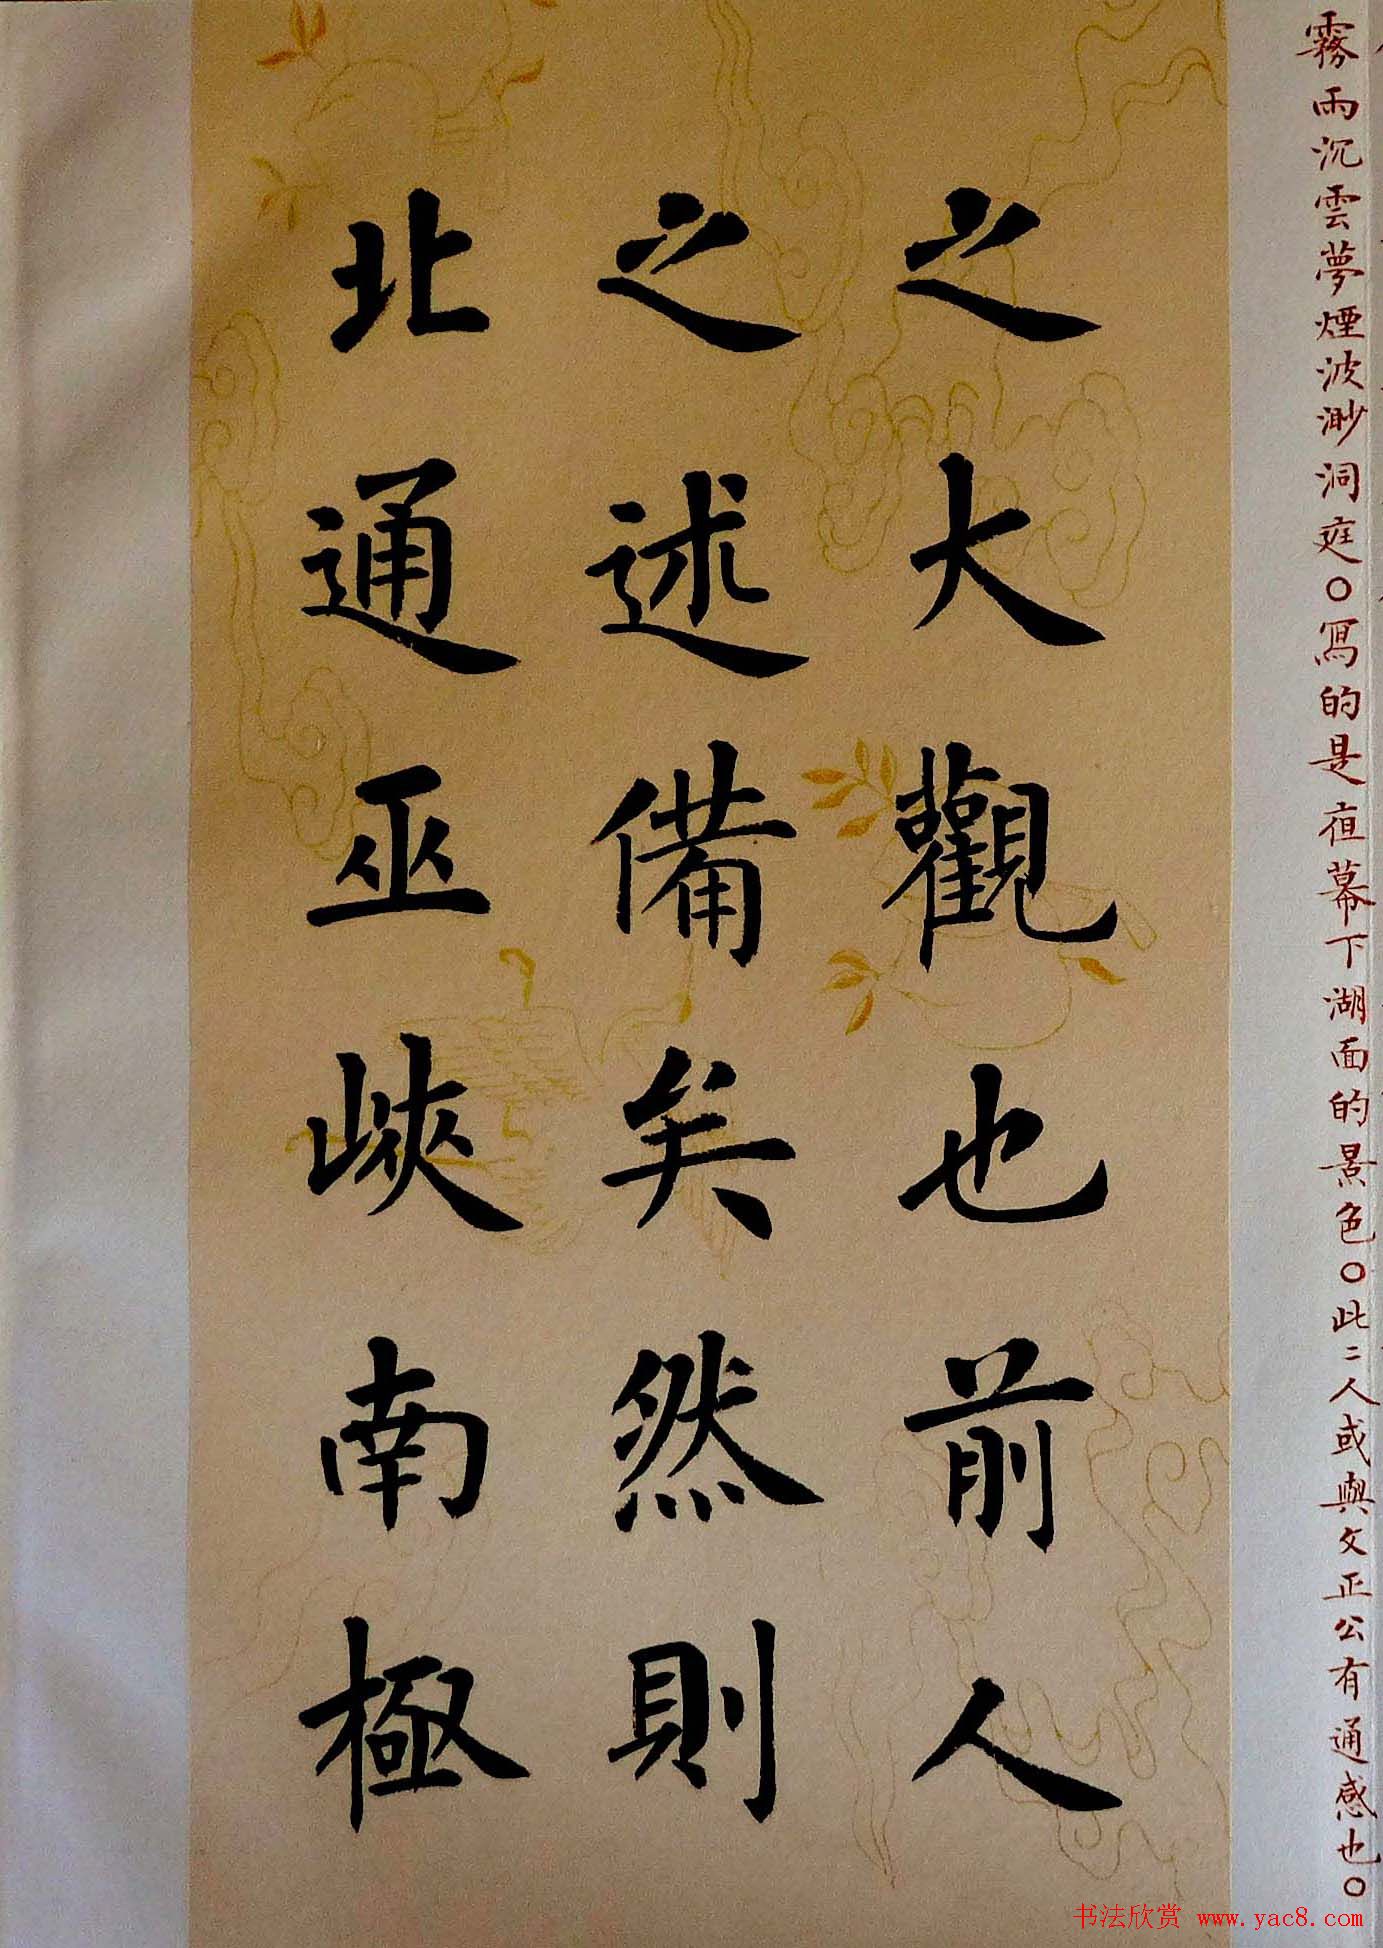 霧雨沉雲夢煙波渺洞庭〇寫的是夜幕下湖面的景色〇此二人或與文正公有通感也〇
之大觀也前人
之述備矣然則
北通巫峽南極
书法欣赏 www.yac8.com